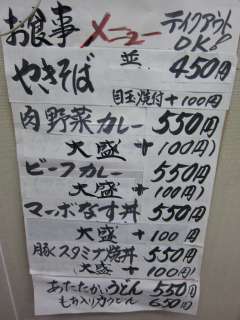 お食事 メニュー テイクアウト
OK!
やきそば 並 450円
目玉焼付 +100円
肉野菜カレー 550円
大盛 +100円)
ビーフカレー 550円
大盛 +100円)
マーボなす丼 550円
大盛 +100円
豚スタミナ焼丼 550円
大盛 +100円)
あたたかいうどん 550円
もち入り力うどん 650円